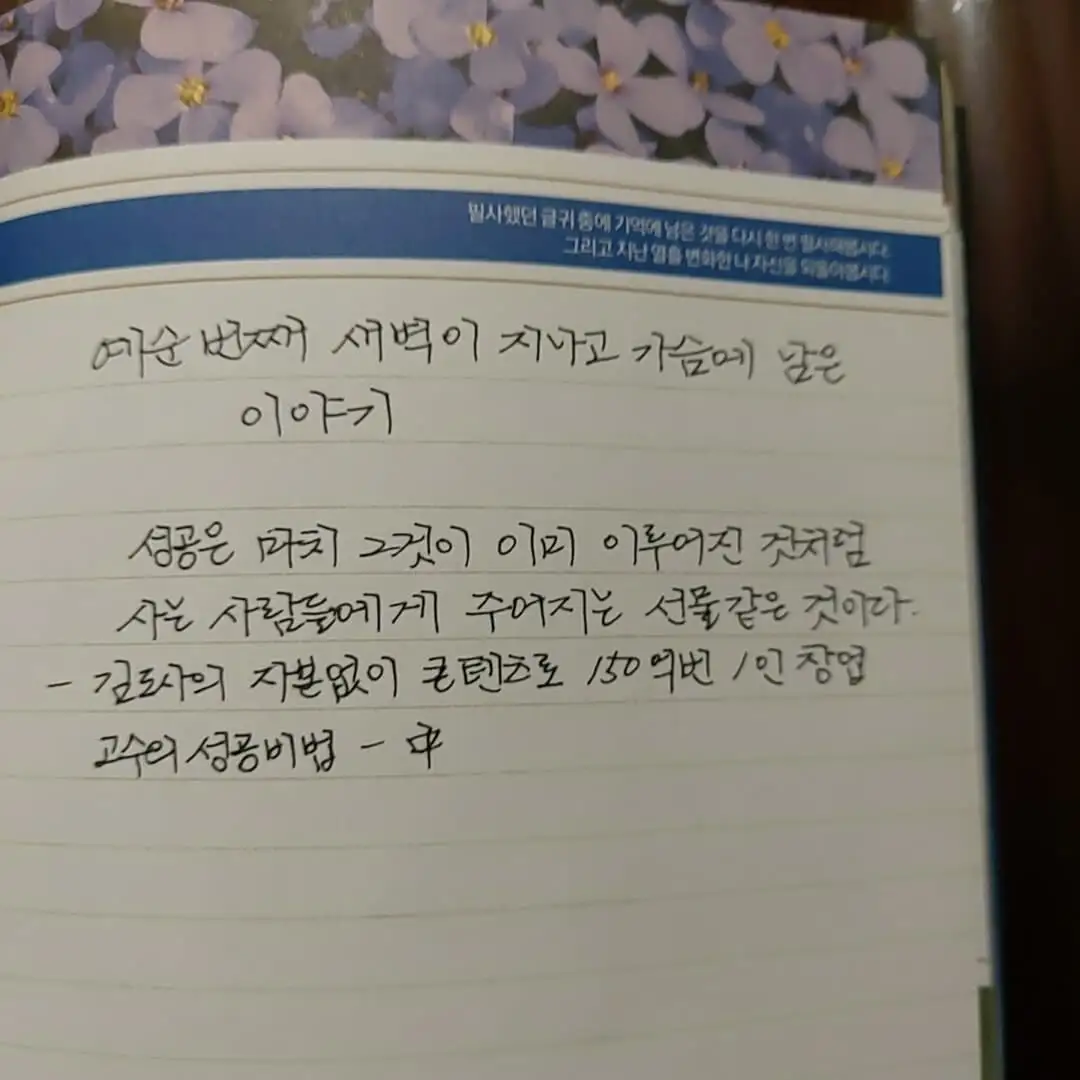 필사했던 글귀 중에 기억에 남은 것을 다시 한 번 필사해봅시다.
그리고 지난 열흘 변화한 나 자신을 되돌아봅시다.
예순 번째 새벽이 지나고 가슴에 남은
이야기
성공은 마치 그것이 이미 이루어진 것처럼
사는 사람들에게 주어지는 선물같은 것이다.
- 김도사의 자본없이 콘텐츠로 150억번 1인 창업
고수의 성공비법 - 中